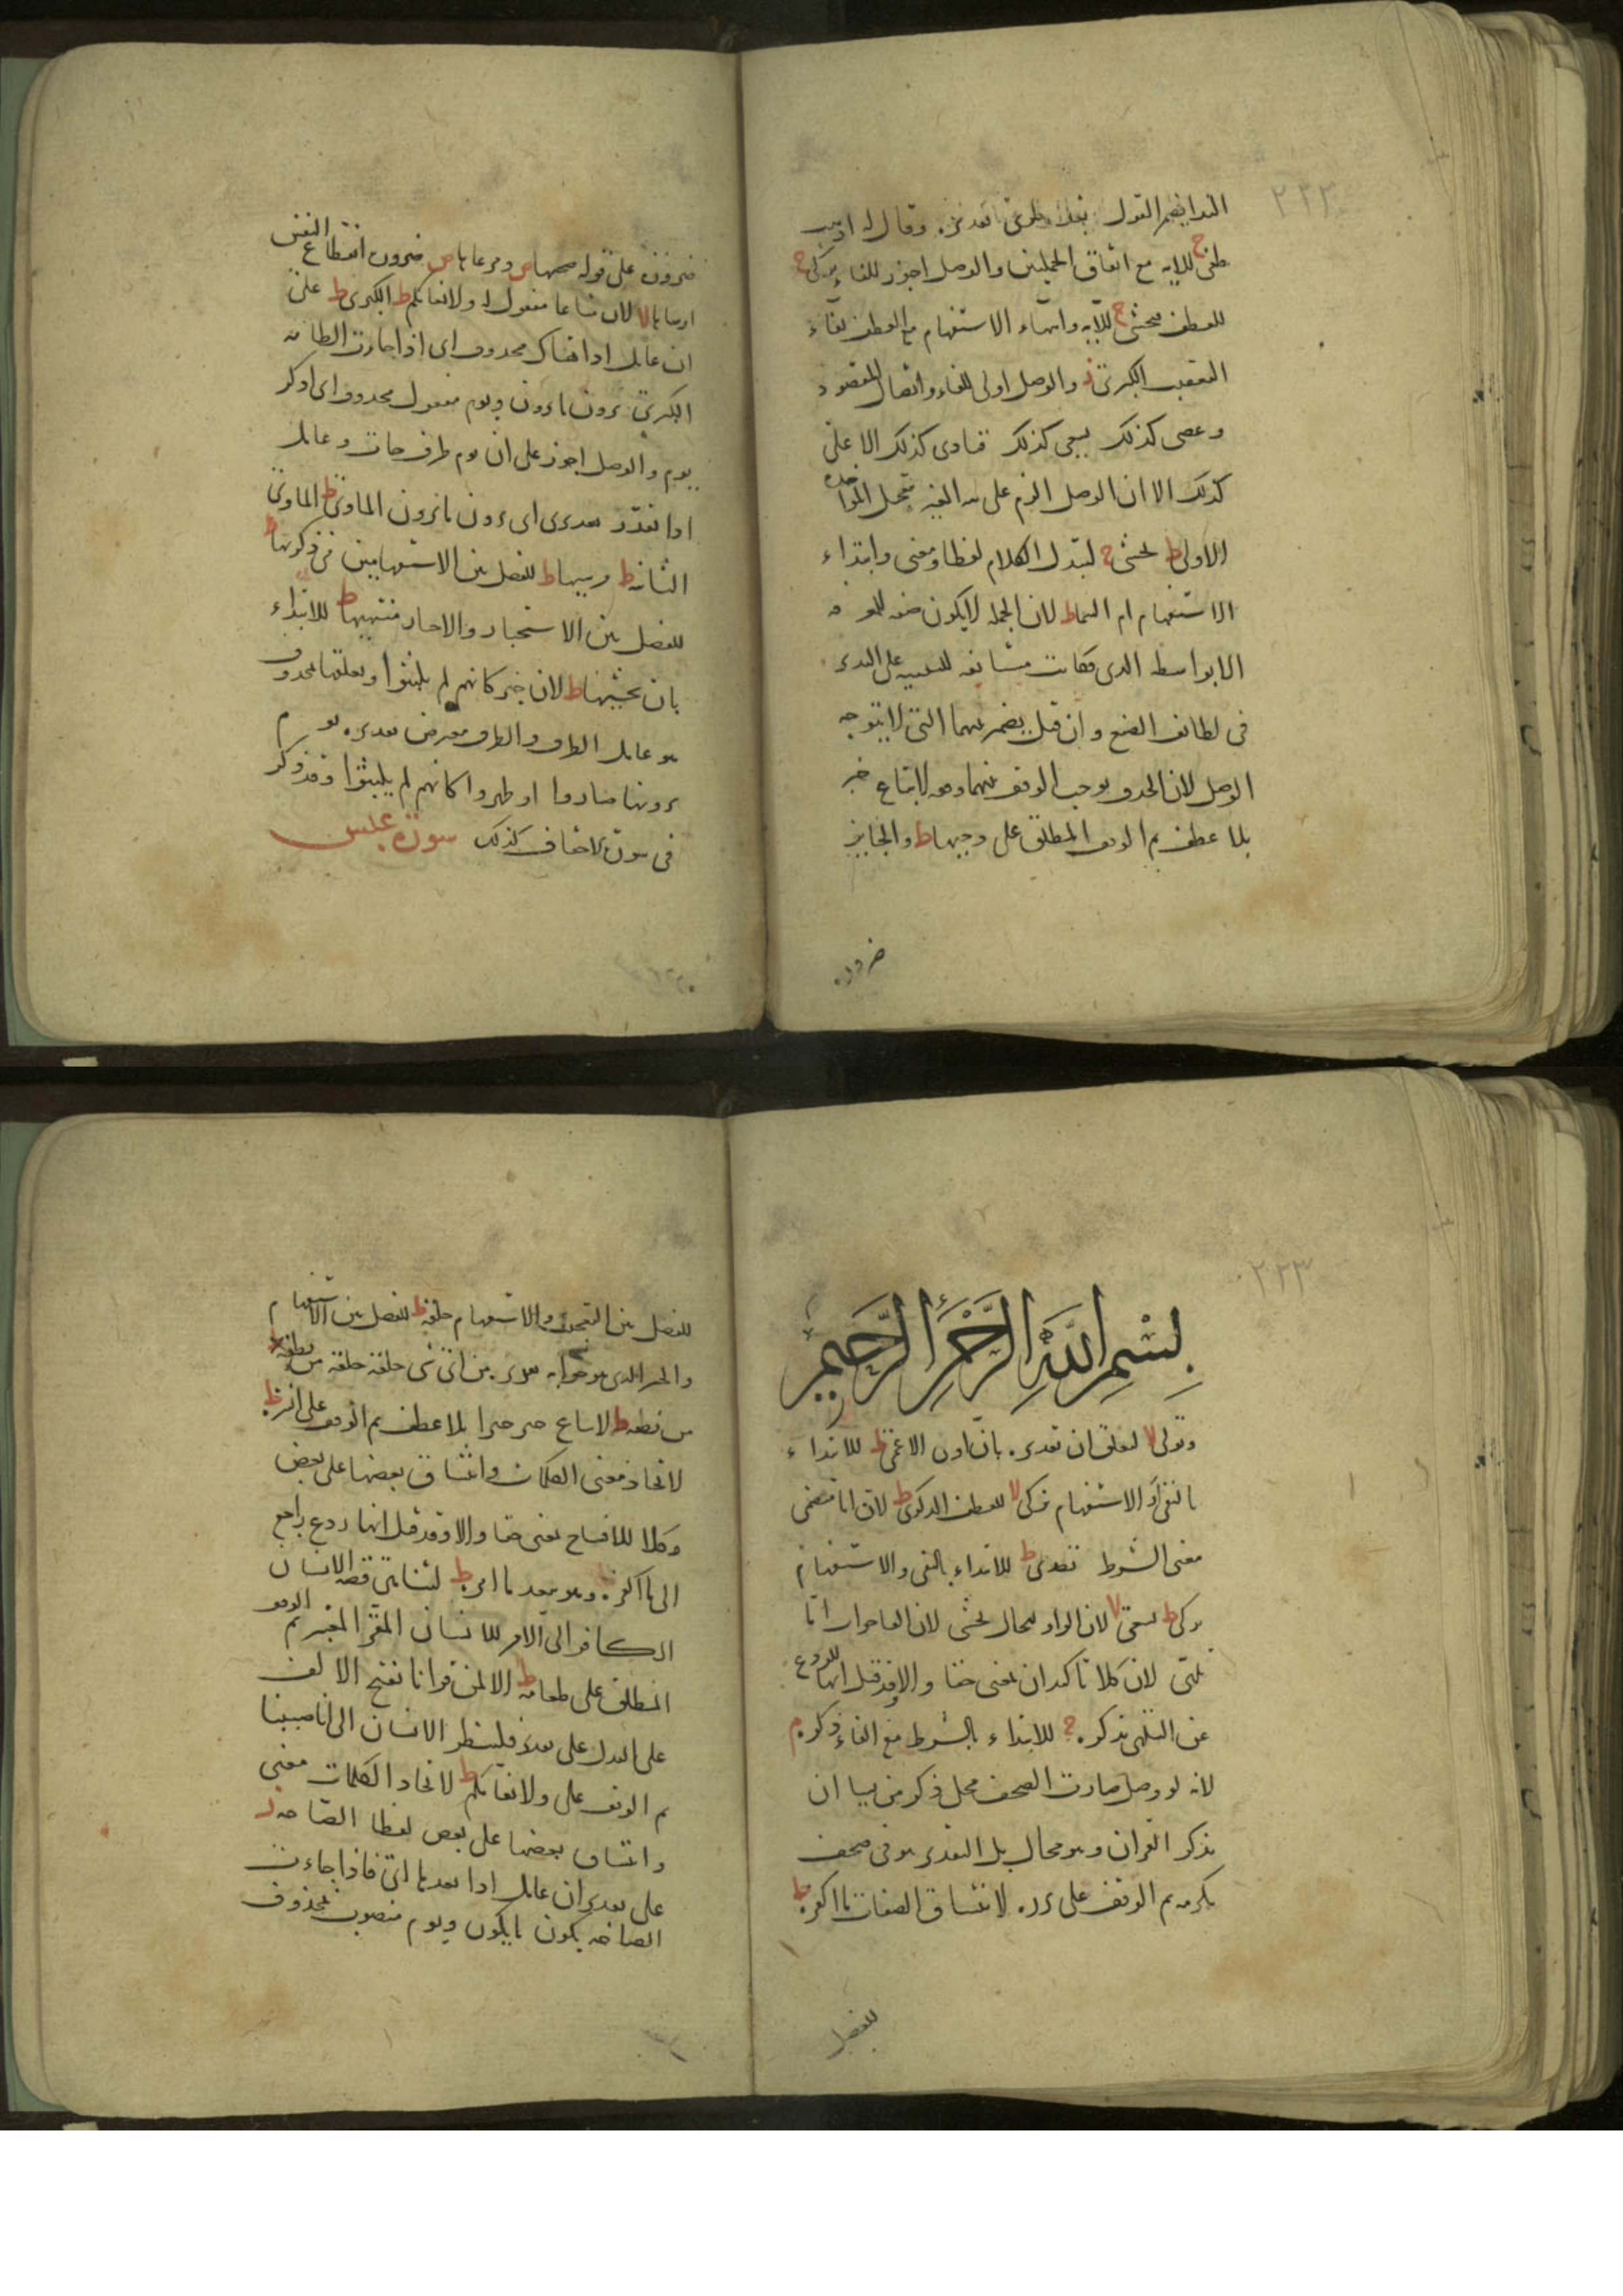 ٢٢٢
النداء يضمر القول وقال له اذهب
طغى ج للاية مع اتفاق الجملتين والوصل اجوز للفاء تزكى ج
للعطف فتخشى ج للآية وانتهاء الاستفهام مع العطف بفاء
التعقيب الكبرى ز والوصل اولى للفاء واتصال المقصود
وعصى كذلك يسعى كذلك فنادى كذلك الاعلى
كذلك الا ان الوصل الزم على
الاولى ط يخشى ج لتبدل الكلام لفظا ومعنى وابتداء
الاستفهام ام السماء ط لان الجملة لا يكون صفة للمعرفة
الا بواسط الذى فكانت
فى لطائف الصنع وان قيل يضمر فيهما التى لا يتوجه
الوصل لان الحذف يوجب الوقف
بلا عطف ثم الوقف المطلق على وجيهها ط والجبابر
ضرورة
ضرورة على قوله ضحيها ص ومرعاها ص ضرورة انقطاع النفس
ارساها لا لان متاعا مفعول له ولانعامكم ط الكبرى ط على
ان عامل اذا محذوف اى اذا جاءت الطامة
الكبرى يرون ما يرون ويوم مفعول محذوف اى اذكر
يوم والوصل اجوز على ان يوم ظرف جاءت وعامل
اذا مقدر اى يرون ما يرون الماوى ط الماوى
الثانية ط مرسيها ط للفصل بين الاستفهامين من ذكريها ط
للفصل بين الاستخبار والاخبار منتهيها ط للابتداء
بان يخشيها ط لان خبر كانهم لم يلبثوا
هو عامل الظرف والظرف معترض تقديره يوم
يرونها كانهم لم يلبثوا وقد ذكر
فى سورة الاحقاف كذلك سورة عبس
٢٢٣
بسم الله الرحمن الرحيم
وتولى لا لتعلق ان تقديره بان الاعمى ط للابتداء
بالنفى او الاستفهام يزكى لا للعطف الذكرى ط لان اما تتضمن
معنى الشرط تصدى ط للابتداء بالنفى والاستفهام
يزكى ط يسعى لا لان الواو للحال يخشى لان الفاء جواب اما
تلهى لان كلا تاكيد ان بمعنى حقا والا فقد قيل انها للردع
عن التلهى تذكرة ج للابتداء بالشرط مع الفاء ذكره م
لانه لو وصل صارت الصحف محل ذكر من يشا ان
يذكر القرآن وهو محال بل التقدير هو فى صحف
مكرمة ثم الوقف على بررة لاتساق الصفات ما اكفره ط
للفصل
للفصل بين التعجب والاستفهام خلقه ط للفصل بين الاستفهام
والخبر الذى هو جوابه من اى شى خلقه خلقه من نطفة
من نطفة ط بلا عطف ثم الوقف على انشره ط
لاتحاد معنى الكلمات واتساق بعضها على بعض
وكلا للافتتاح بمعنى حقا والا وقد قيل انها ردع راجع
الى ما اكفره وهو بعيد ما امره ط لتناهى قصة الانسان
الكافر الى الامر للانسان ثم الوقف
المطلق على طعامه ط الا لمن قرا انا بفتح الالف
على البدل على تقدير فلينظر الانسان الى انا صببنا
ثم الوقف على ولانعامكم ط لاتحاد الكلمات معنى
واتساق بعضها على بعض لفظا الصاخة ز
على تقدير ان عامل اذا بعدها اى فاذا جاءت
الصاخة يكون ما يكون ويوم منصوب بمحذوف